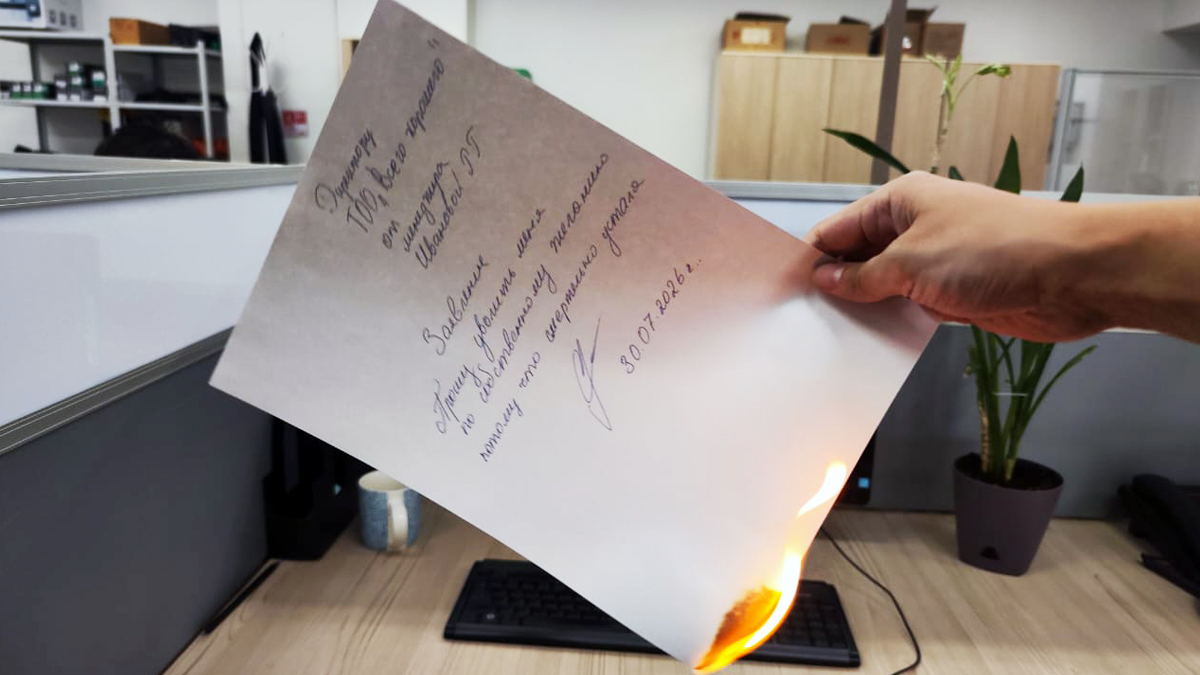 Директору
ТОО „Всего хорошего“
от
менеджера
Ивановой Г Г
Заявление
Прошу уволить меня
по собственному желанию
потому что смертельно устала
30.07.2026 г..